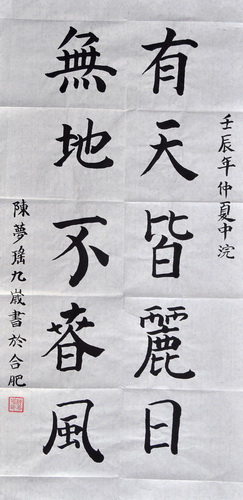 壬辰年仲夏中浣
有天皆麗日
無地不春風
陳夢瑤九歲書於合肥